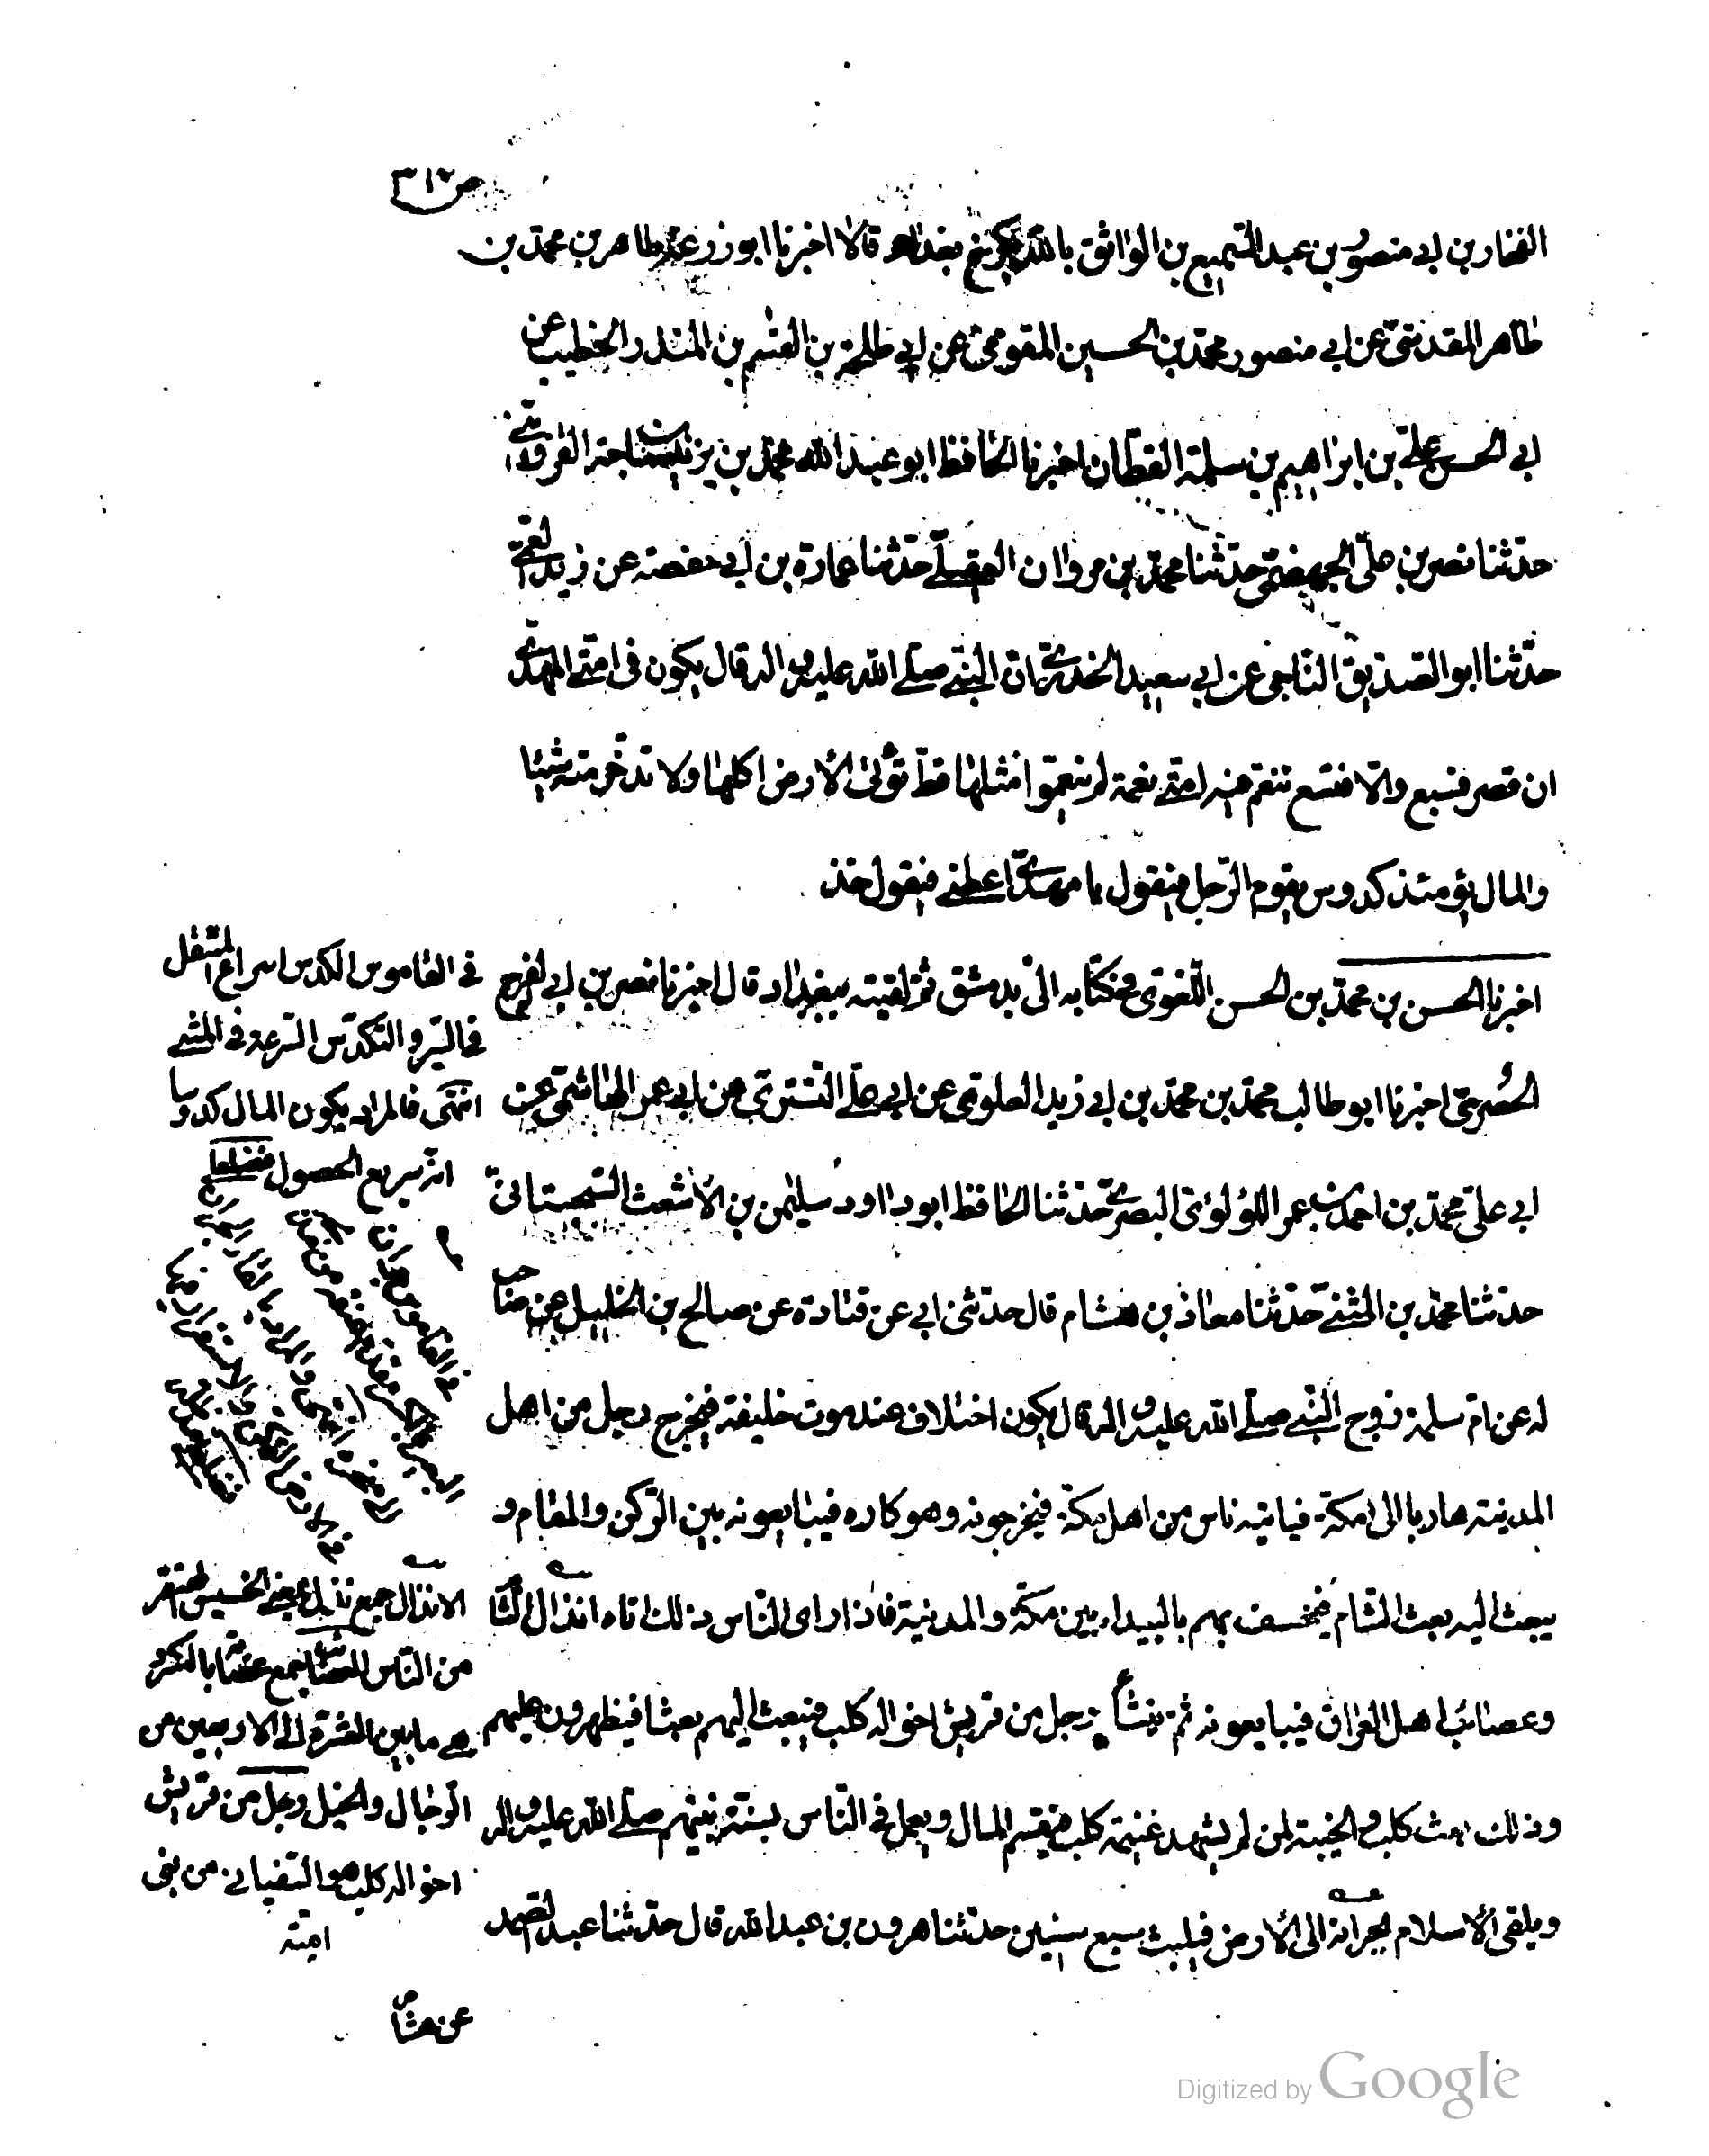 ص٣١٢
الغفار بن ابي منصور بن عبد السميع بن الواثق بالله بكرخ بغداد قالا اخبرنا ابو زرعة طاهر بن محمد بن
طاهر المقدسيّ عن ابي منصور محمد بن الحسين المقوميّ عن ابي طلحة بن القسم بن المنذر الخطيب عن
ابي الحسن عليّ بن ابراهيم بن سلمة القطّان اخبرنا الحافظ ابو عبد الله محمد بن يزيد بن ماجة القزوينيّ
حدّثنا نصر بن عليّ الجهضميّ حدّثنا محمد بن مروان العقيليّ حدّثنا عمارة بن ابي حفصة عن زيد العميّ
حدّثنا ابو الصدّيق الناجي عن ابي سعيد الخدريّ انّ النبيّ صلّى الله عليه واله قال يكون في امّتي المهديّ
ان قصر فسبع والّا فتسع تنعم فيه امّتي نعمة لم ينعموا مثلها قطّ تؤتى الأرض اكلها ولا تدّخر منه شيئا
والمال يؤمئذ كدوس يقوم الرّجل فيقول يا مهديّ اعطني فيقول خذ
اخبرنا الحسن بن محمد بن الحسن اللغوي في كتابه اليّ بدمشق ثمّ لقيته ببغداد قال اخبرنا نصر بن ابي الفرج
الحُصريّ اخبرنا ابو طالب محمد بن محمد بن ابي زيد العلويّ عن ابي عليّ التستري عن ابي عمر الهاشميّ عن
ابي عليّ محمد بن احمد بن عمر اللؤلؤيّ البصريّ حدّثنا الحافظ ابو داود سليمن بن الأشعث السّجستانيّ
حدثنا محمد بن المثنّى حدّثنا معاذ بن هشام قال حدثني ابي عن قتادة عن صالح بن الخليل عن صاحب
له عن امّ سلمة زوج النبيّ صلّى الله عليه واله قال يكون اختلاف عند موت خليفة فيخرج رجل من اهل
المدينة هاربا الى مكّة فياتيه ناس من اهل مكّة فيخرجونه وهو كاره فيبايعونه بين الرّكن والمقام و
يبعث اليه بعث الشام فيخسف بهم بالبيداء بين مكّة والمدينة فاذا راى النّاس ذلك اتاه انذال الشام
وعصائب اهل العراق فيبايعونه ثمّ ينشأ رجل من قريش اخواله كلب فيبعث اليهم بعثا فيظهرون عليهم
وذلك بعث كلب والخيبة لمن لم يشهد غنيمة كلب فيقسم المال ويعمل في النّاس بسنّة نبيّهم صلّى الله عليه واله
ويلقى الأسلام بجرانه الى الأرض فيلبث سبع سنين حدثنا هرون بن عبد الله قال حدّثنا عبد الصّمد
عن هشام
في القاموس الكدس اسراع المثقل
في السّير والتكدّس السّرعة في المشي
انتهى فالمراد بكون المال كدوسا
انّه سريع الحصول
الانذال جمع نذل بمعنى الخسيس المحتقر
من النّاس العصائب جمع عصابة بالكسر و
هي ما بين العشرة الى الاربعين من
الرّجال والخيل رجل من قريش
اخواله كلب هو السّفياني من بني
اميّة
Digitized by Google